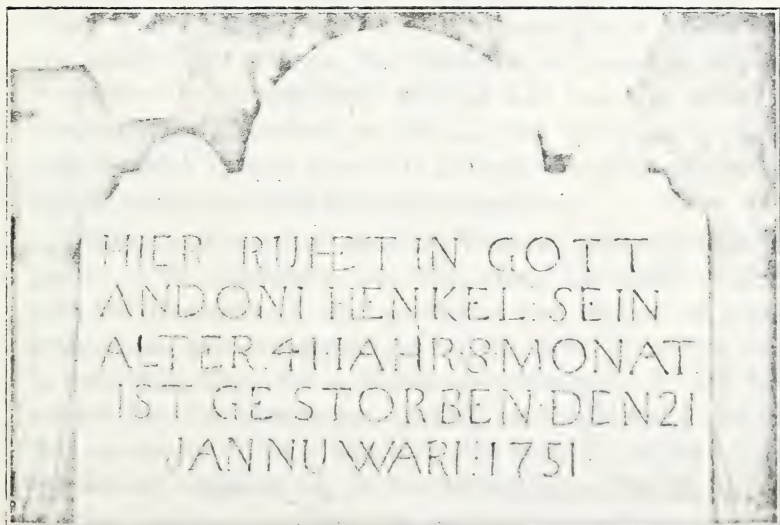 HIER RUHET IN GOTT
ANDONI HENKEL: SEIN
ALTER 41·IAHR·8·MONAT
IST GESTORBEN·DEN 21
JANNUWARI: 1751